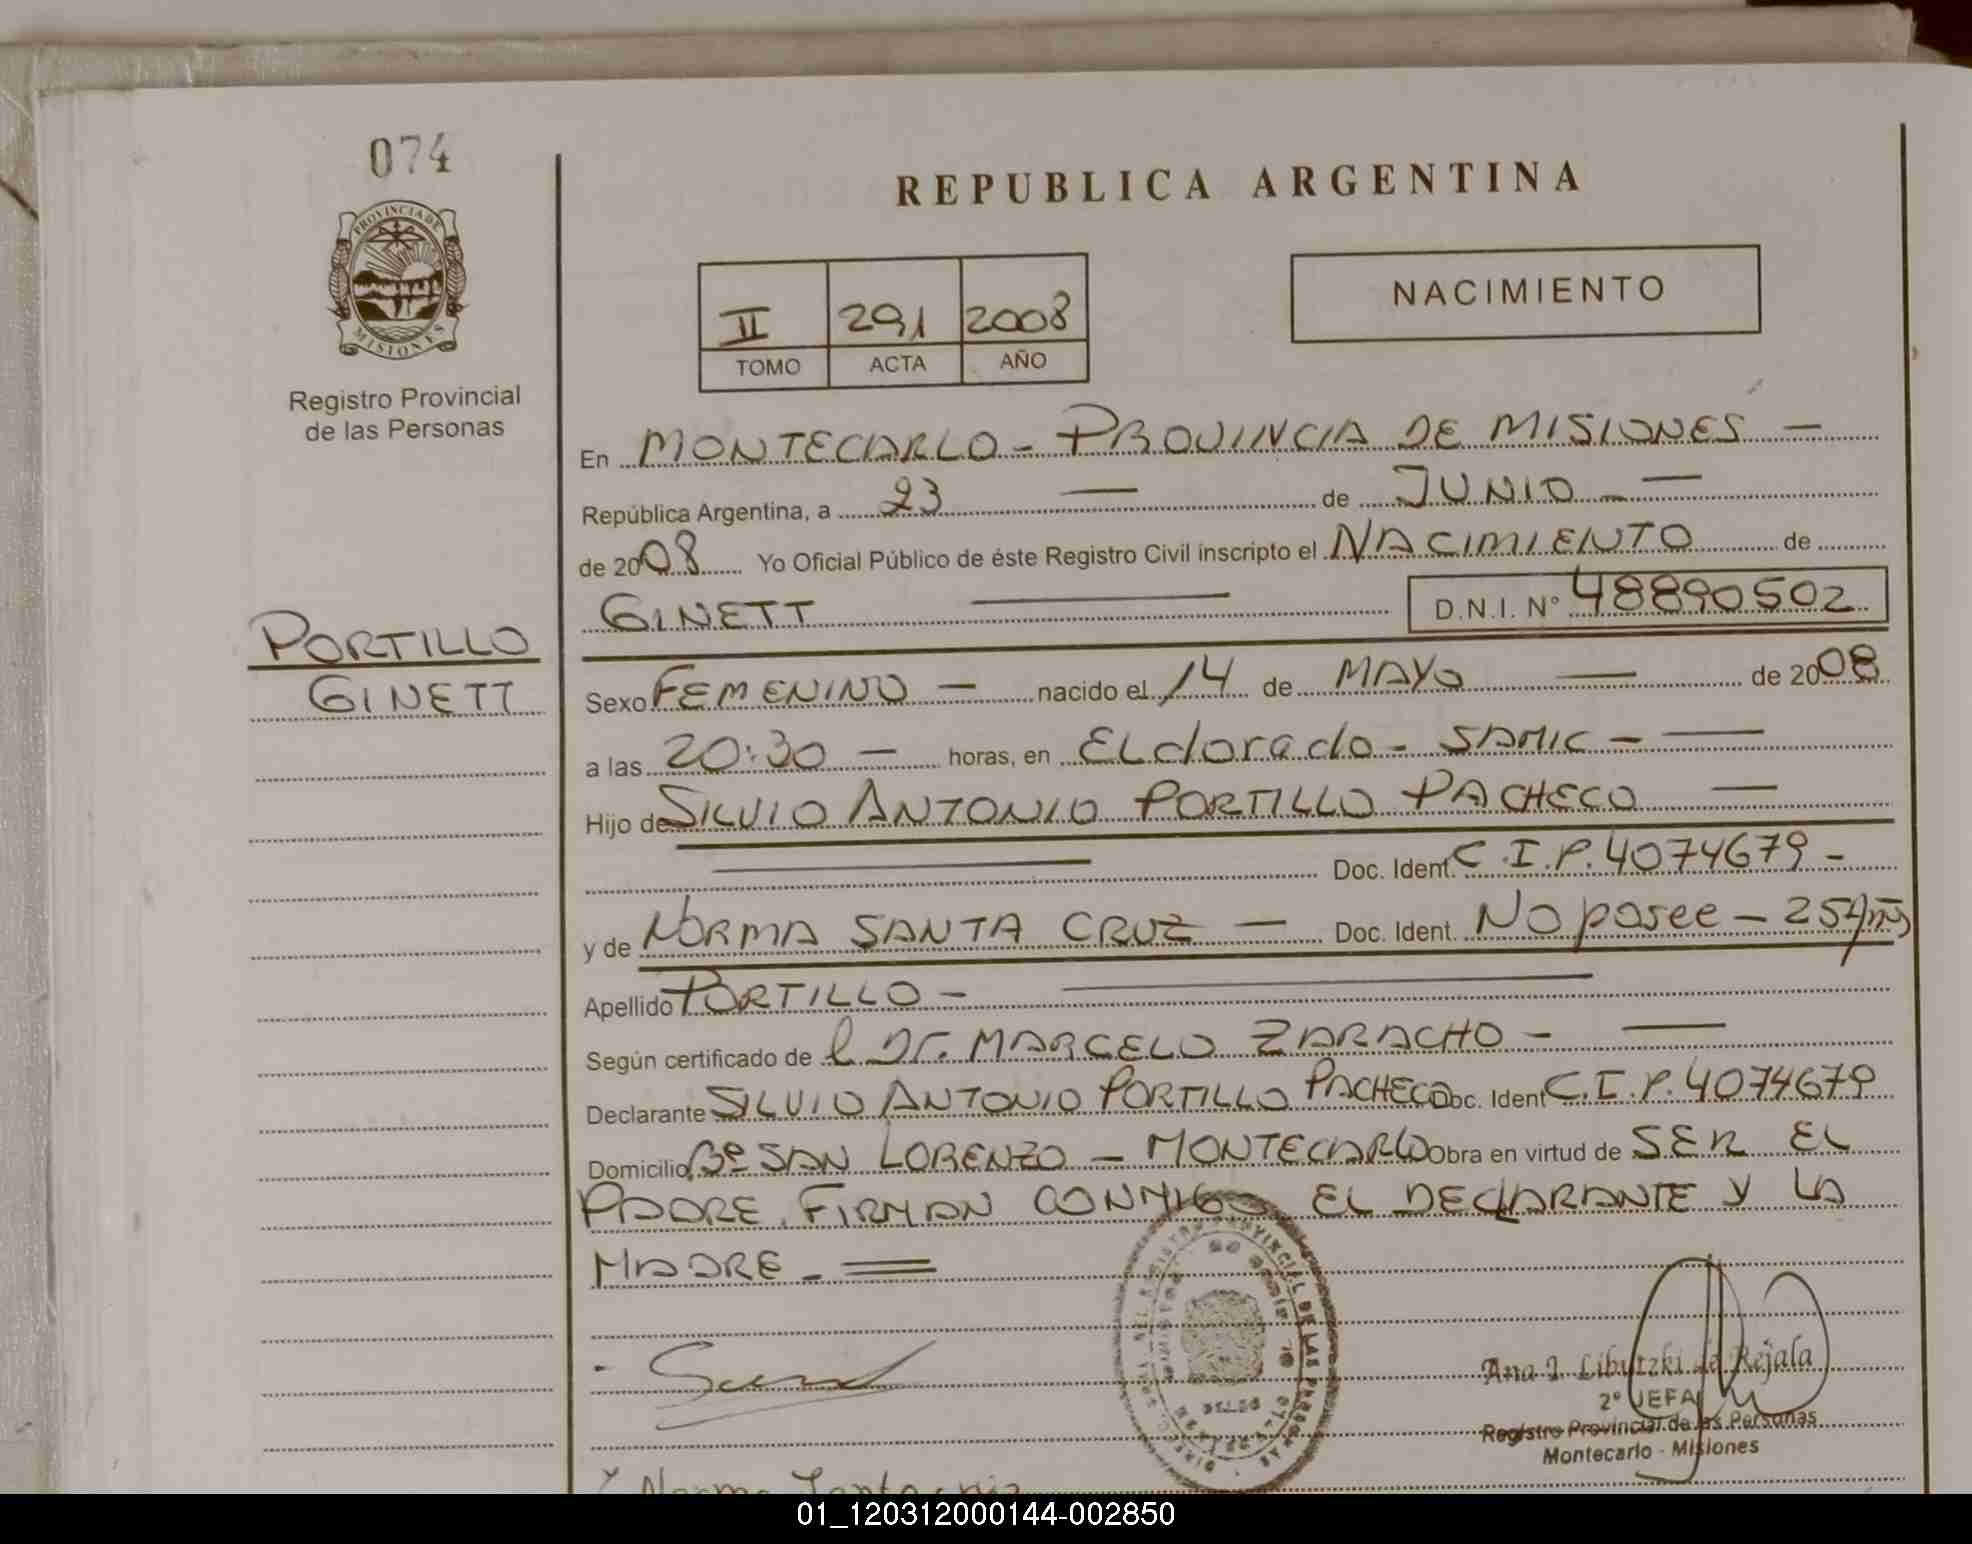 074
PROVINCIA DE
MISIONES
Registro Provincial
de las Personas
PORTILLO
GINETT
REPUBLICA ARGENTINA
II 291 2008
TOMO ACTA AÑO
NACIMIENTO
En MONTECARLO - PROVINCIA DE MISIONES -
República Argentina, a 23 — de JUNIO - —
de 2008 Yo Oficial Público de éste Registro Civil inscripto el NACIMIENTO de
GINETT — D.N.I. N° 48890502
Sexo FEMENINO - nacido el 14 de MAYO — de 2008
a las 20:30 — horas, en ELdorado - SAMIC - —
Hijo de SILVIO ANTONIO PORTILLO PACHECO —
— Doc. Ident. C.I.P. 4074679 -
y de NORMA SANTA CRUZ — Doc. Ident. No posee - 25 Años
Apellido PORTILLO - —
Según certificado de l Dr. MARCELO ZARACHO - —
Declarante SILVIO ANTONIO PORTILLO PACHECO Doc. Ident C.I.P. 4074679
Domicilio Bº SAN LORENZO - MONTECARLO Obra en virtud de SER EL
PADRE. FIRMAN CONMIGO EL DECLARANTE Y LA
MADRE - =
REGISTRO PROVINCIAL DE LAS PERSONAS
Ana I. Libutzki de Rejala
2° JEFA
Registro Provincial de las Personas
Montecarlo - Misiones
Norma Santa cruz
01_120312000144-002850